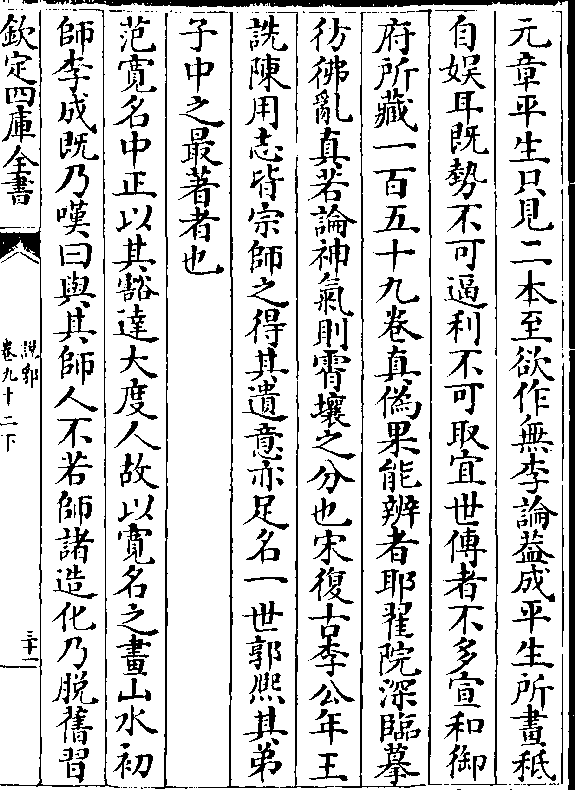 元章平生只見二本至欲作無李論葢成平生所畫秖
自娱耳既勢不可逼利不可取宜世傳者不多宣和御
府所藏一百五十九卷真偽果能辨者耶翟院深臨摹
彷彿亂真若論神氣則霄壤之分也宋復古李公年王
詵陳用志皆宗師之得其遺意亦足名一世郭熈其弟
子中之最著者也
范寛名中正以其豁達大度人故以寛名之畫山水初
師李成既乃嘆曰與其師人不若師諸造化乃脱舊習
欽定四庫全書
說郛
卷九十二下
三十一